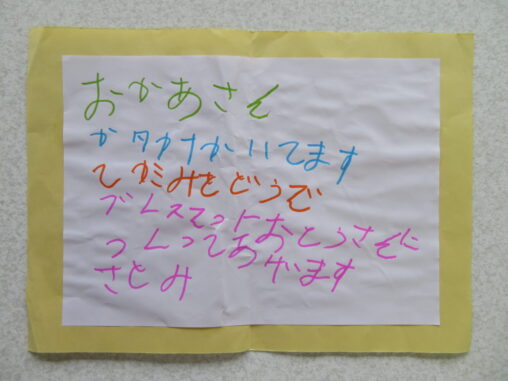 おかあさん
かタカナかいてます
てがみをどうぞ
ブレスてっトおとうさんに
つくってあげます
さとみ